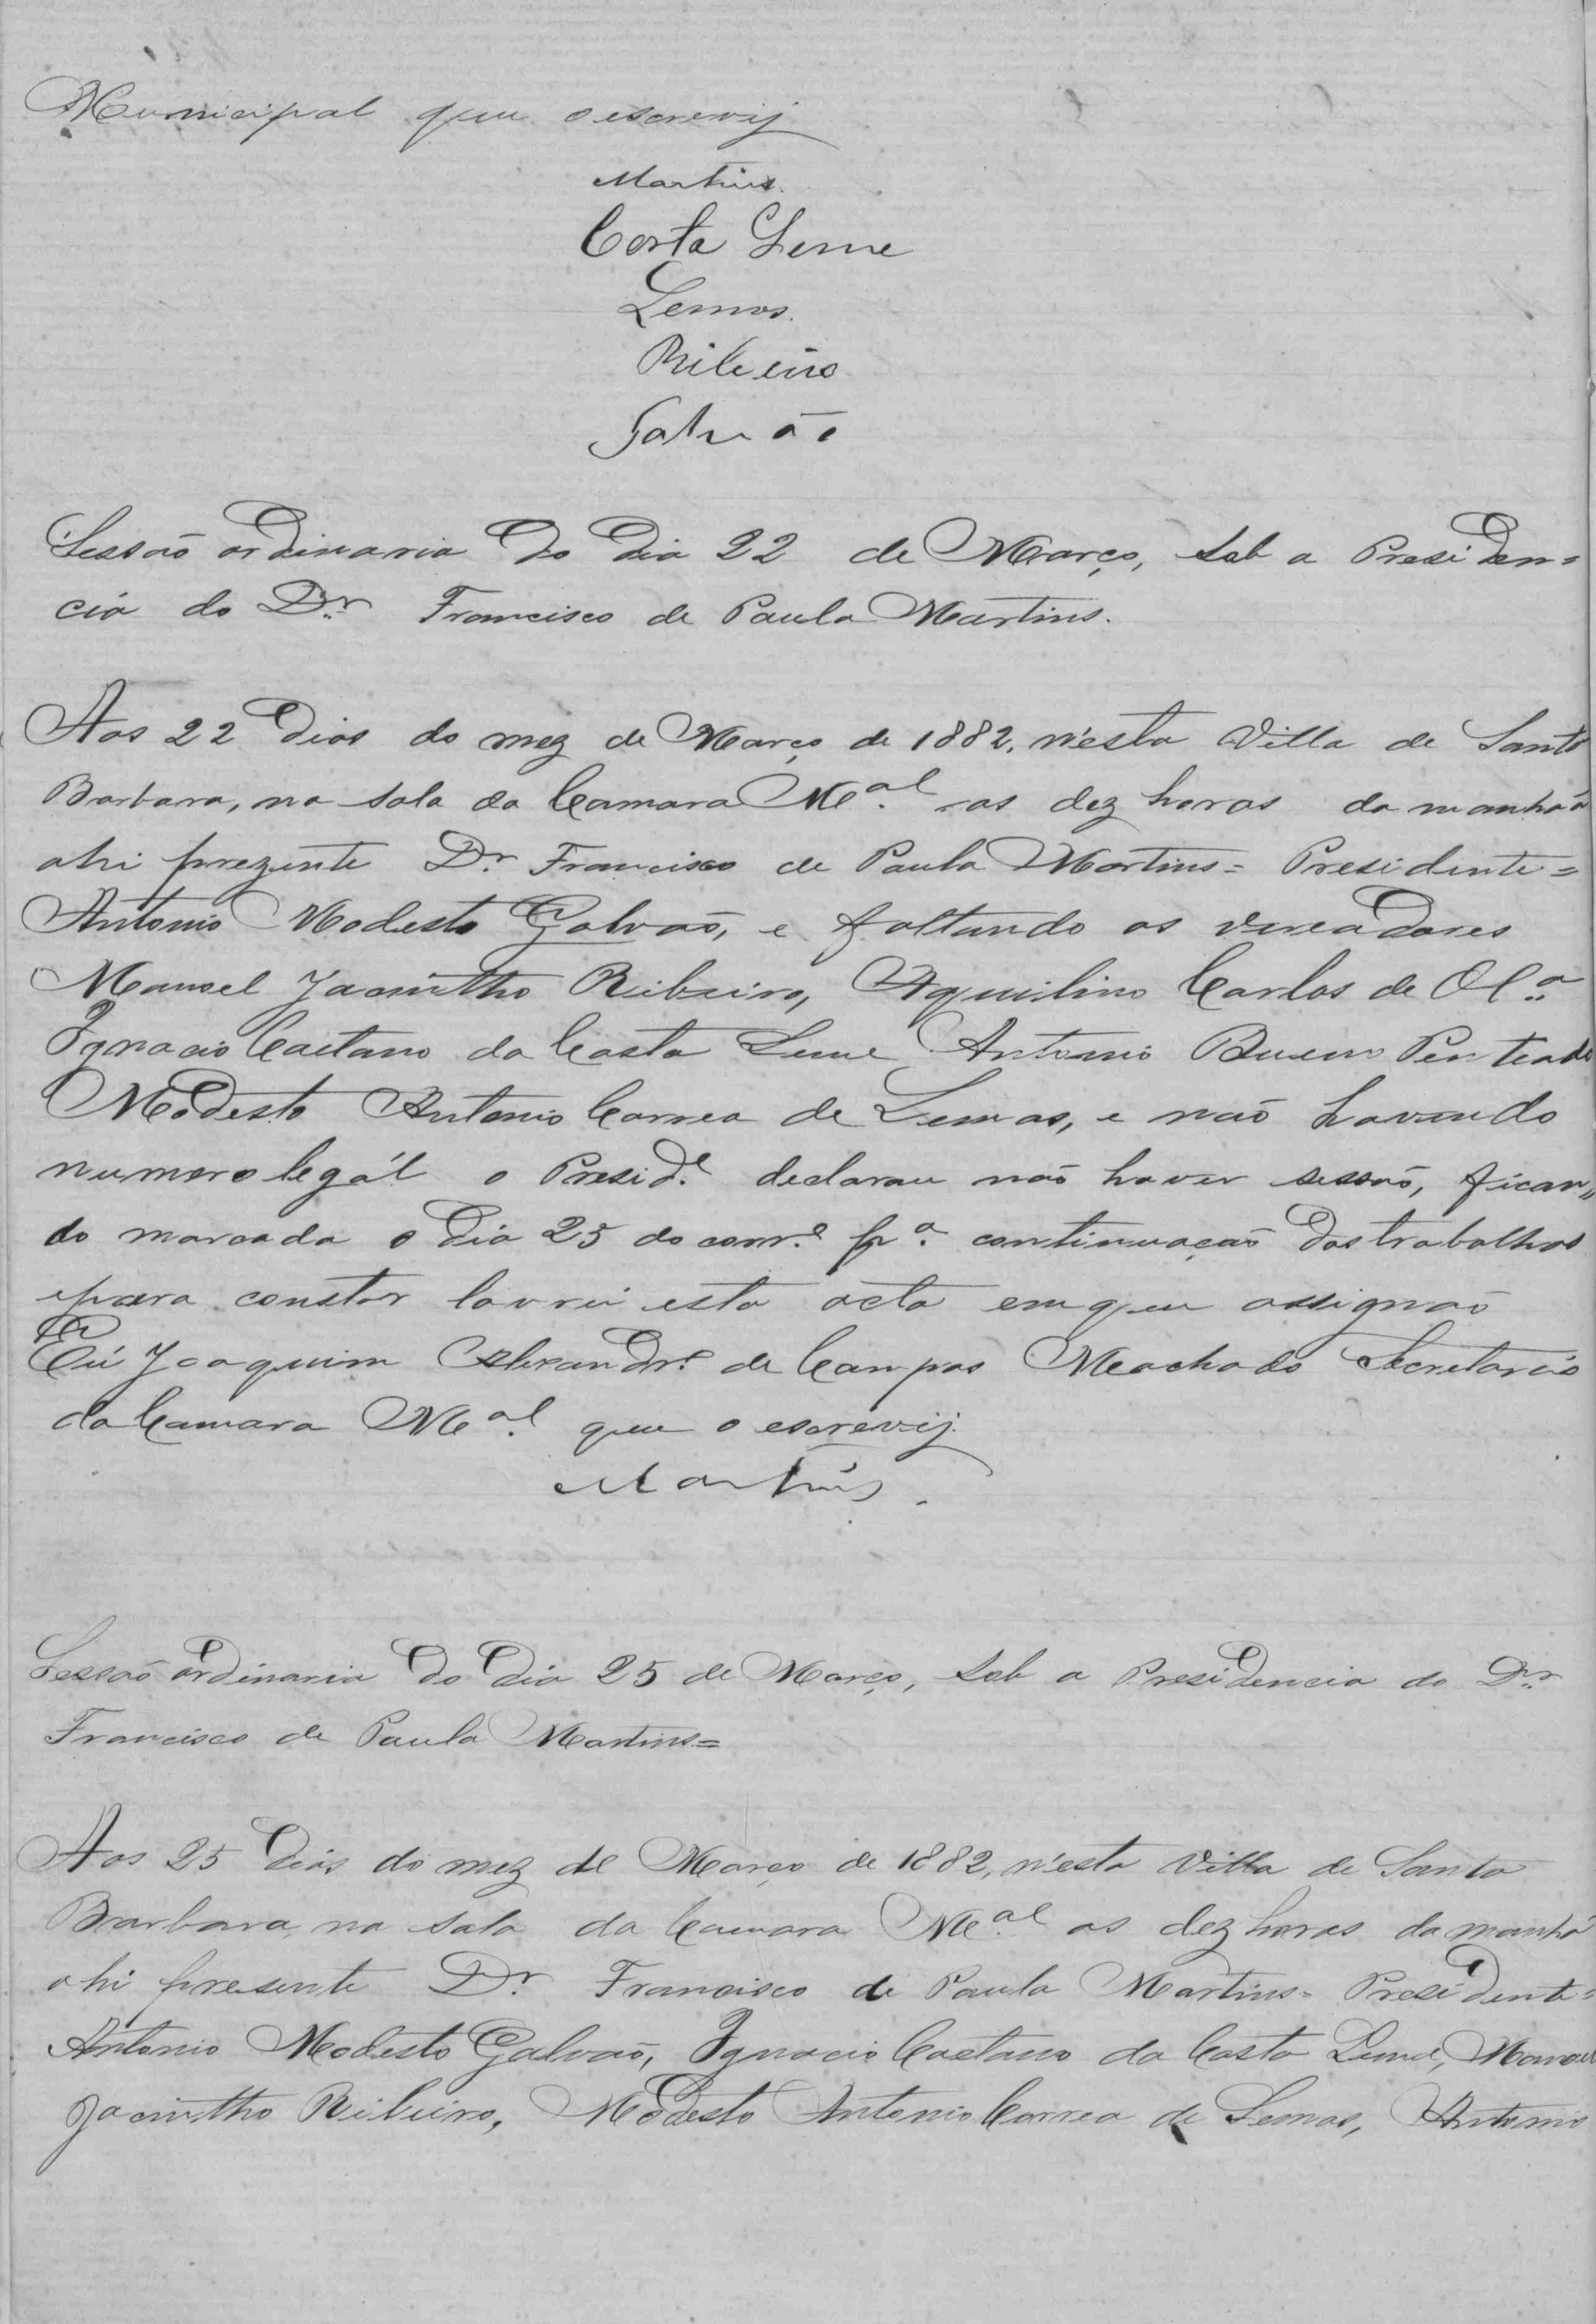 Municipal que o escrevij
Martins.
Costa Leme
Lemos.
Ribeiro
Galvão
Sessão ordinaria do dia 22 de Março, sob a Presiden=
cia do Dr. Francisco de Paula Martins.
Aos 22 dias do mez de Março de 1882, n'esta Villa de Santa
Barbara, na sala da Camara Mal. as dez horas da manhãa
ahi prezente Dr. Francisco de Paula Martins= Presidente=
Antonio Modesto Galvão, e faltando os vereadores
Manoel Jacintho Ribeiro, Aquilino Carlos de Ola.
Ignacio Caetano da Costa Leme Antonio Bueno Penteado
Modesto Antonio Correa de Lemos, e não havendo
numero legál o Preside. declarou não haver sessão, fican„
do marcada o dia 25 do corre. pa. continuação dos trabalhos
e para constar lavrei esta acta em que assignão
Eú Joaquim Alexandre. de Campos Machado Secretario
da Camara Mal. que o escrevij.
Martins.
Sessão ordinaria do dia 25 de Março, sob a Presidencia do Dr.
Francisco de Paula Martins=
Aos 25 dias do mez de Março de 1882, n'esta Villa de Santa
Barbara, na sala da Camara Mal. as dez horas da manhã
ahi presente Dr. Francisco de Paula Martins= Presidente=
Antonio Modesto Galvão, Ignacio Caetano da Costa Leme, Manoel
Jacintho Ribeiro, Modesto Antonio Correa de Lemos, Antonio